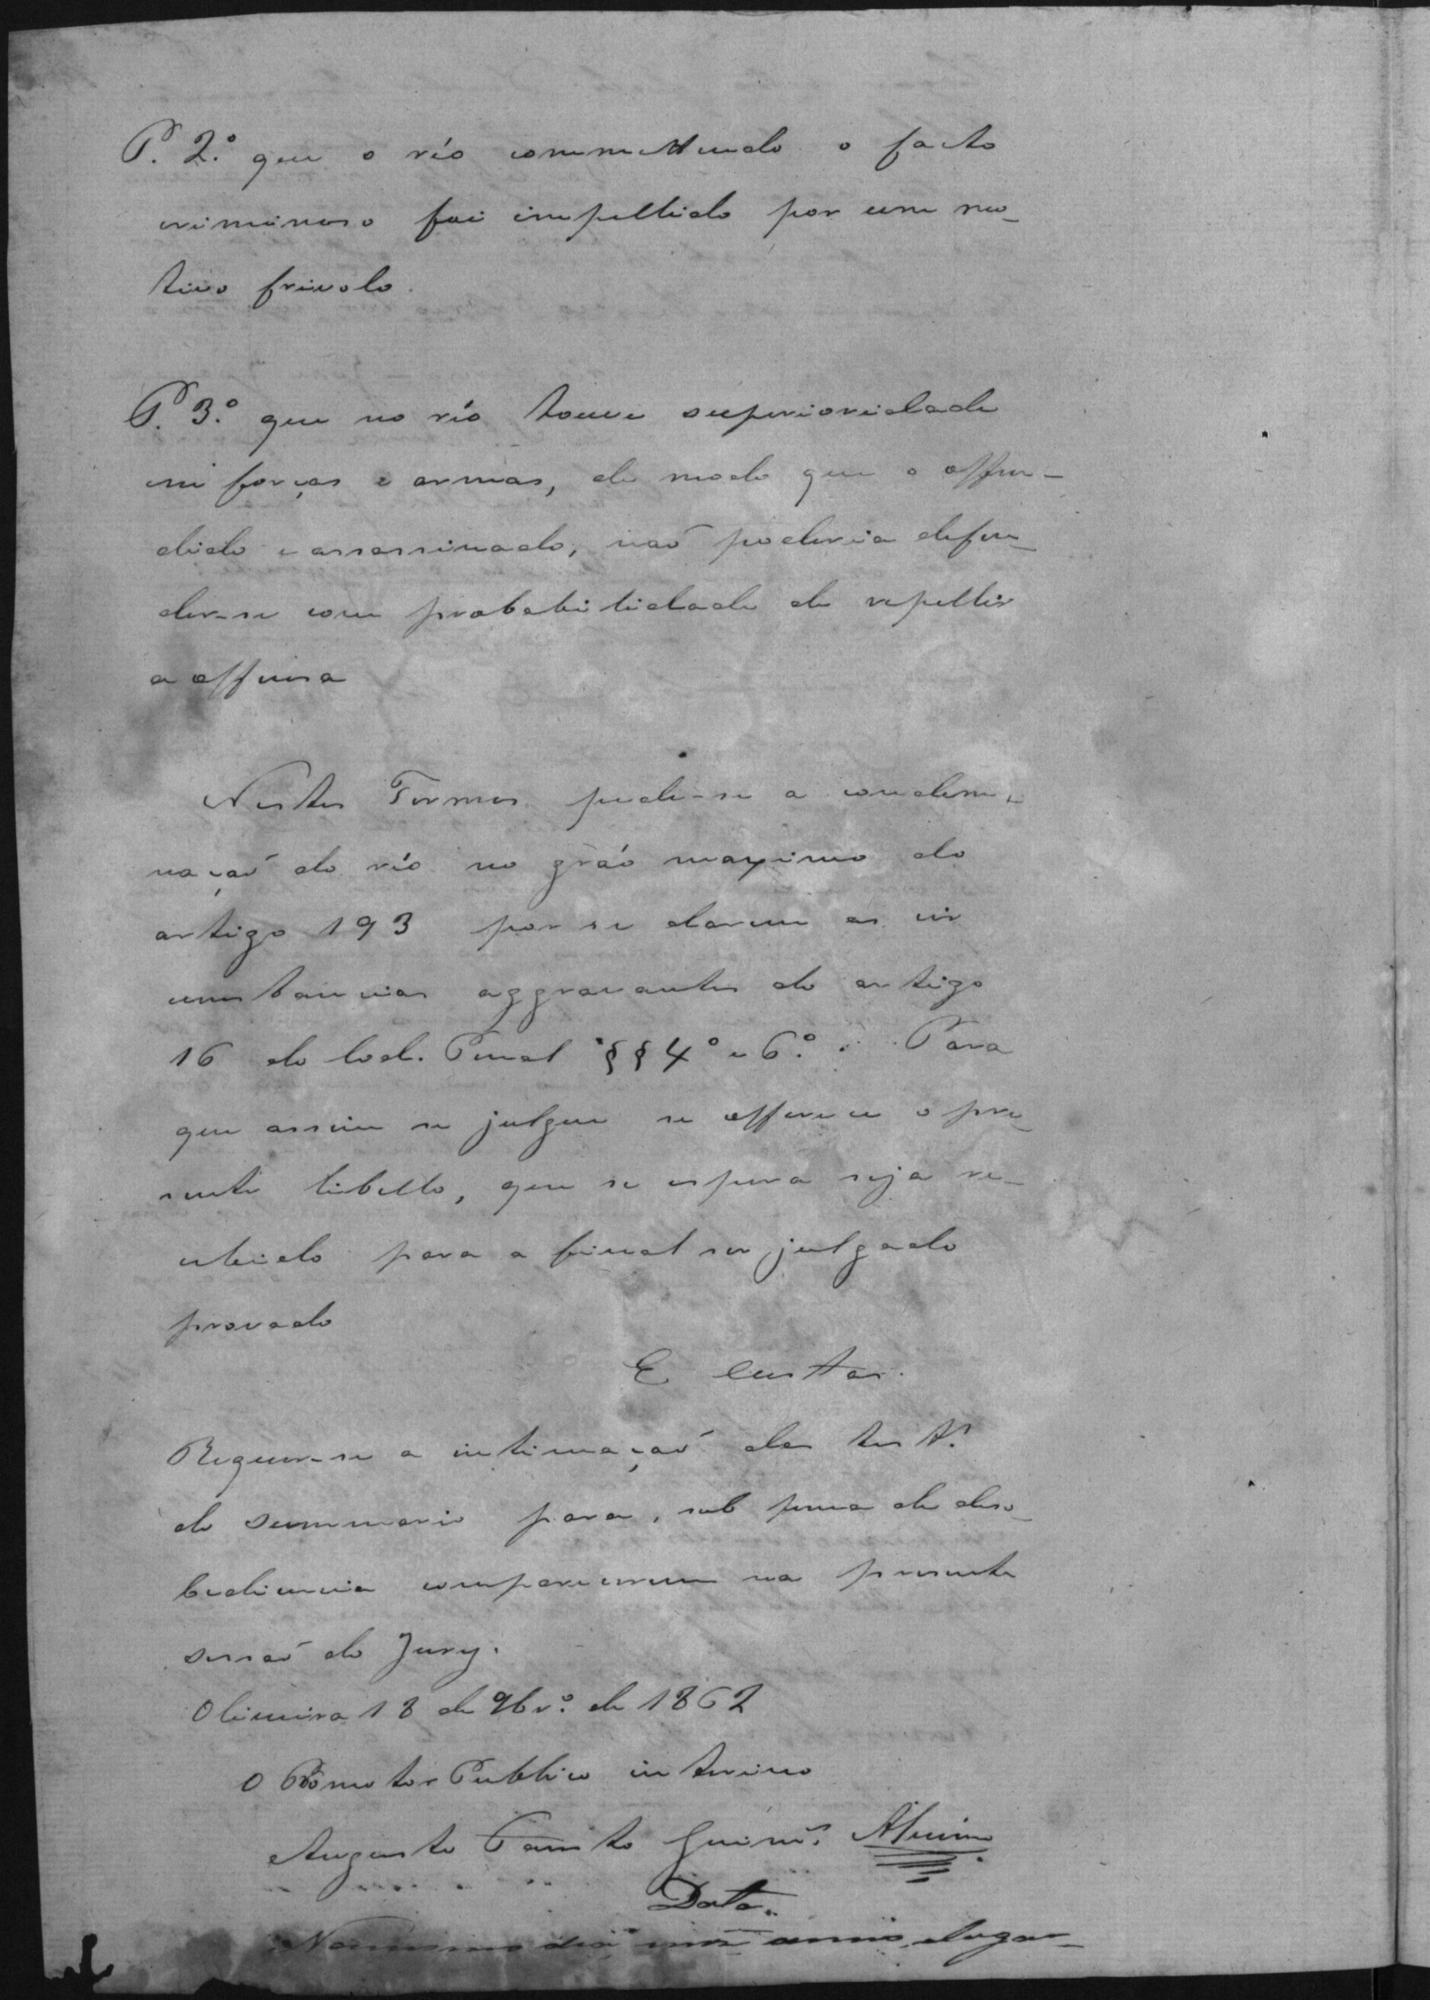 P. 2.º que o réo commettendo o facto
criminoso foi impellido por um mo_
tivo frivolo.
P. 3.º que no réo houve superioridade
em forças e armas, de modo que o offen_
dido e assassinado, naõ poderia defen_
der-se com probabilidade de repellir
a offensa
Nestes Termos pede-se a condem_
naçaõ do réo no gráo maximo do
artigo 193 por se darem as cir
cunstancias aggravantes do artigo
16 do Cod. Penal §§ 4º e 6.º. Para
que assim se julgue se offerece o pre_
sente libello, que se espera seja re_
cebido para a final ser julgado
provado
E custas.
Requer-se a intimaçaõ das test.ª
do summario para, sob pena de deso_
bediencia comparecerem na presente
sessaõ do Jury.
Oliveira 18 de 9br.º de 1862
O Promotor Publico interino
Augusto Guim.es
Data.
No mesmo dia mez anno, e lugar_